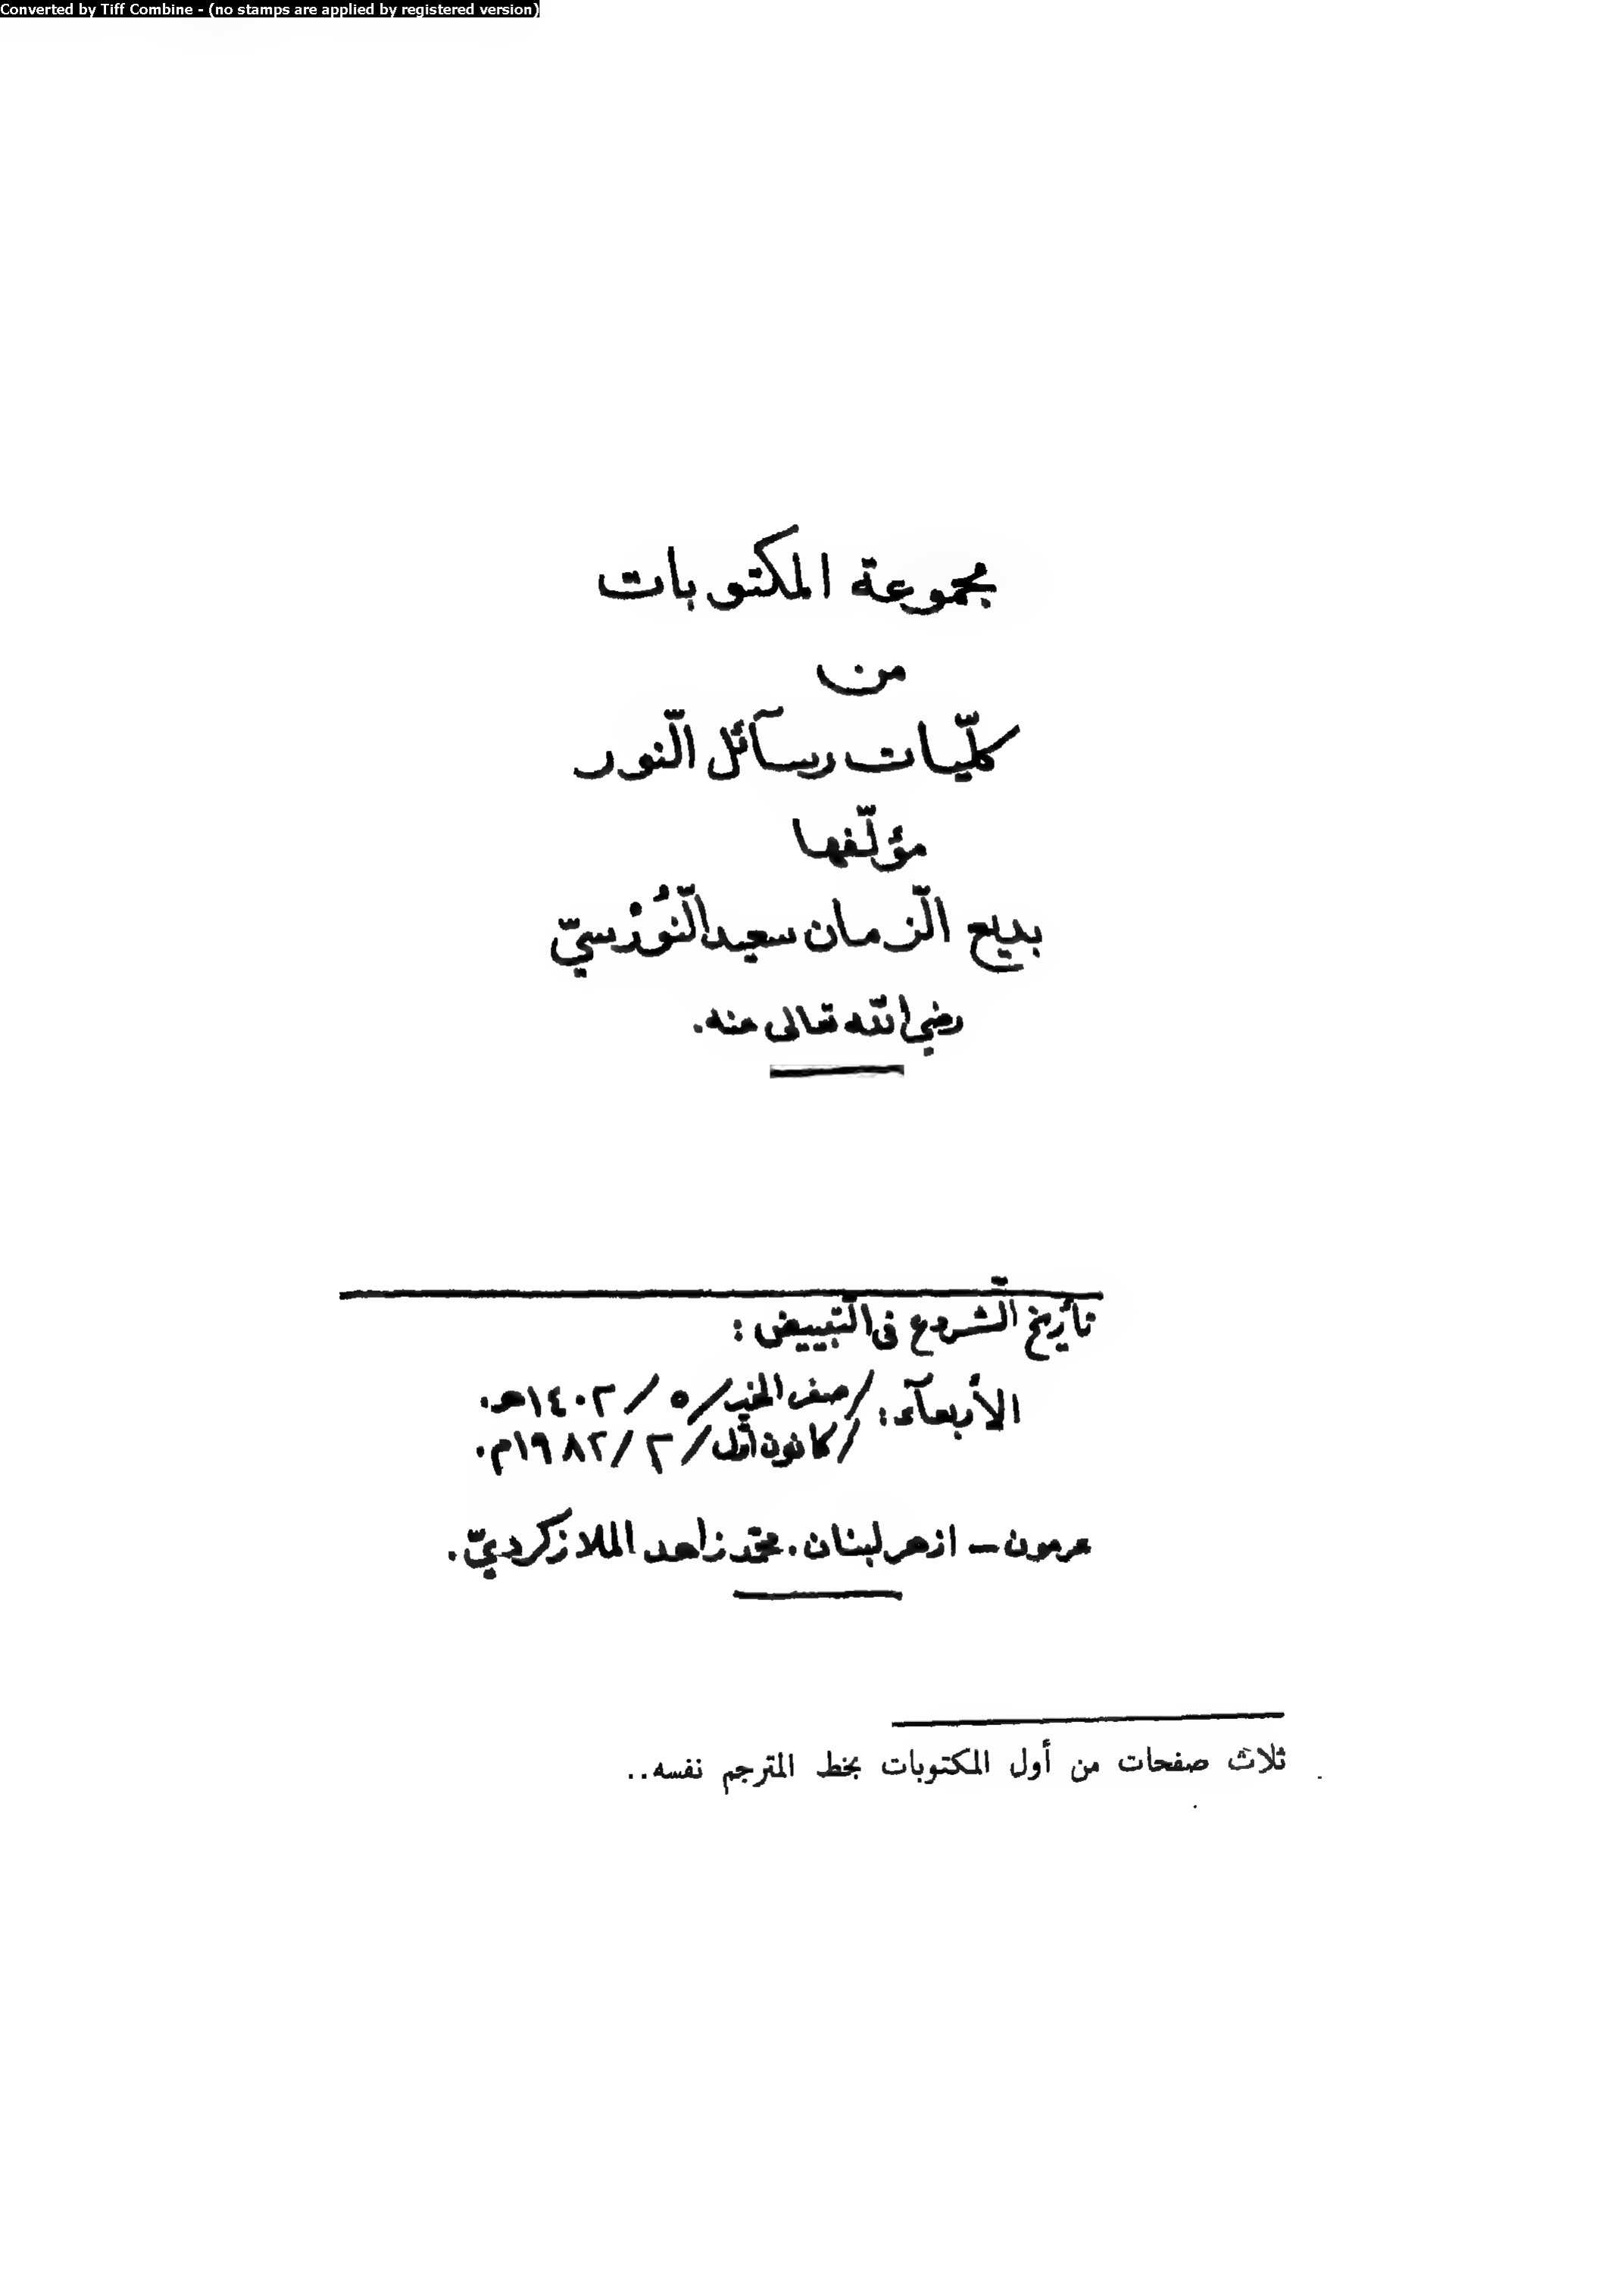 Converted by Tiff Combine - (no stamps are applied by registered version)
مجموعة المكتوبات
من
كلّيات رسآئل النّور
مؤلّفها
بديع الزّمان سعيد النُّوْرْسيّ
رضي الله تعالى عنه.
تأريخ الشّروع فى التّبييض :
الأربعآء : /صفر الخير/٥/١٤٠٢هـ.
/كانون أول/٢/١٩٨٢م.
عرمون – ازهر لبنان . محمّد زاهد الملازكرديّ .
ثلاث صفحات من أول المكتوبات بخط المترجم نفسه..